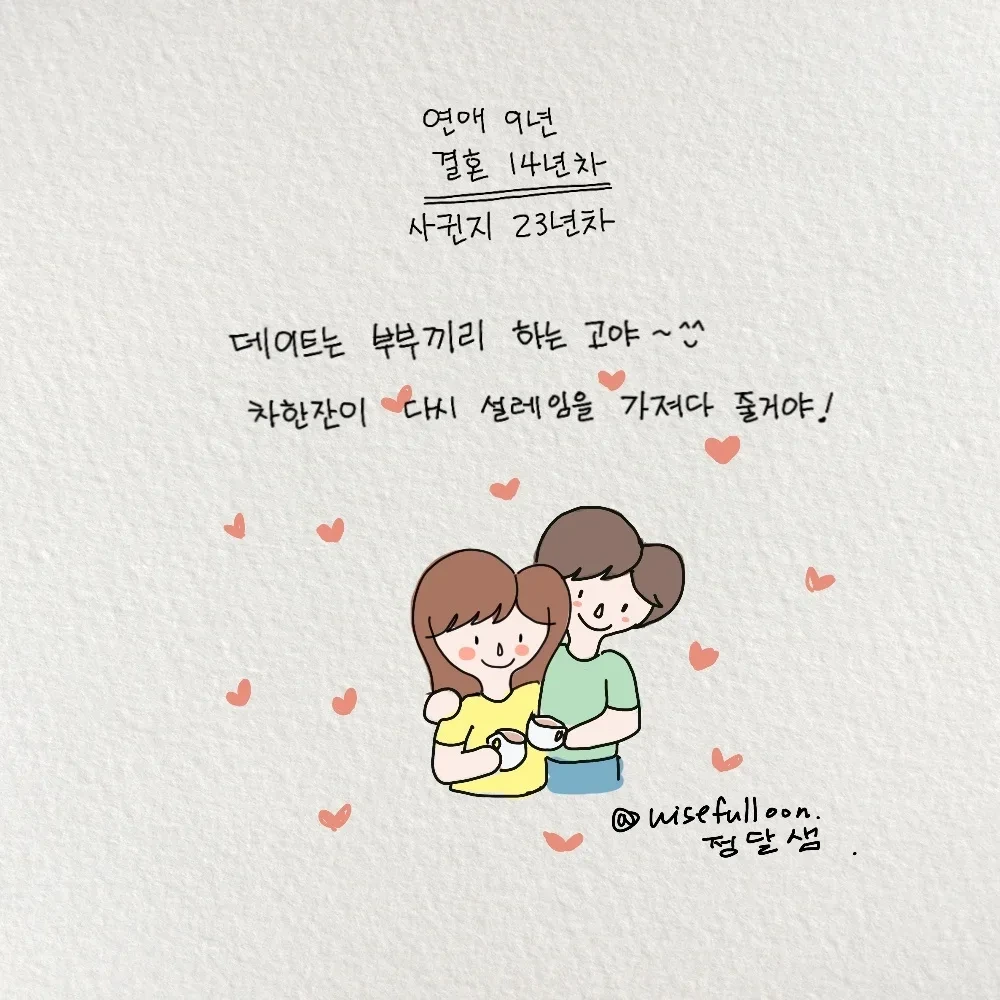 연애 9년
결혼 14년차
사귄지 23년차
데이트는 부부끼리 하는 고야~^^
차한잔이 다시 설레임을 가져다 줄거야!
@wisefulloon.
정달샘.